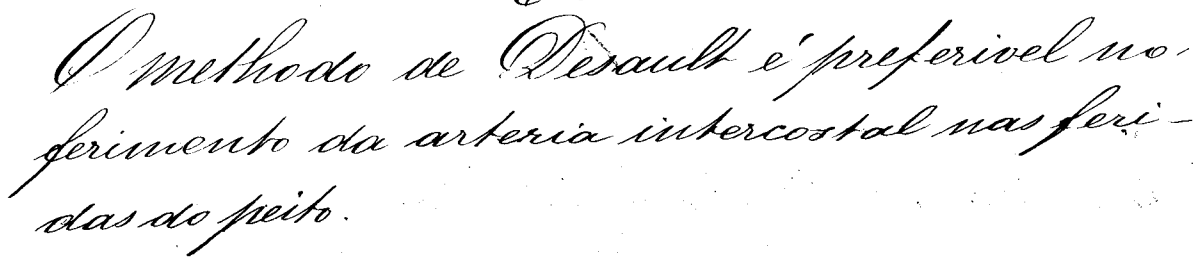 O methodo de Desault é preferivel no
ferimento da arteria intercostal nas feri-
das do peito.